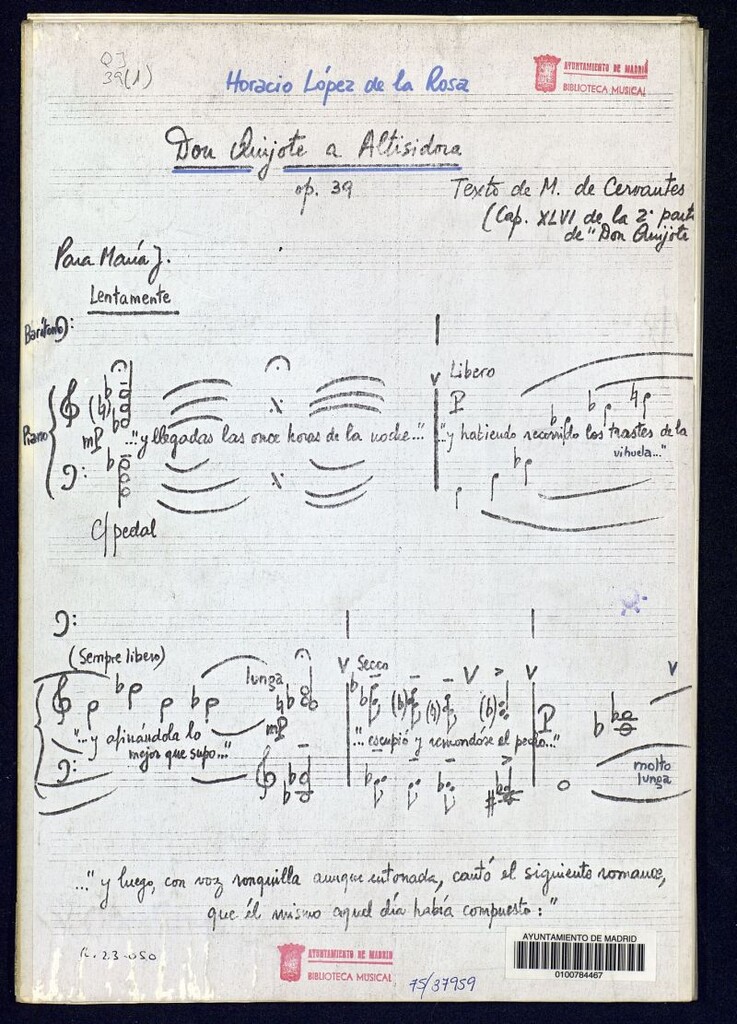 QJ
39(1)
Horacio López de la Rosa
AYUNTAMIENTO DE MADRID
BIBLIOTECA MUSICAL
Don Quijote a Altisidora
op. 39
Texto de M. de Cervantes
(Cap. XLVI de la 2ª parte
de "Don Quijote
Para María J.
Lentamente
Barítono
Piano
mP
Libero
P
..."y llegadas las once horas de la noche..."
"y habiendo recorrido los trastes de la
vihuela..."
C/pedal
(Sempre libero)
lunga
mP
Secco
P
"...y afinándola lo
mejor que supo..."
"... escupió y remondóse el pecho..."
molto
lunga
..."y luego, con voz ronquilla aunque entonada, cantó el siguiente romance,
que él mismo aquel día había compuesto:"
R. 23-050
AYUNTAMIENTO DE MADRID
BIBLIOTECA MUSICAL
75/37959
AYUNTAMIENTO DE MADRID
0100784467